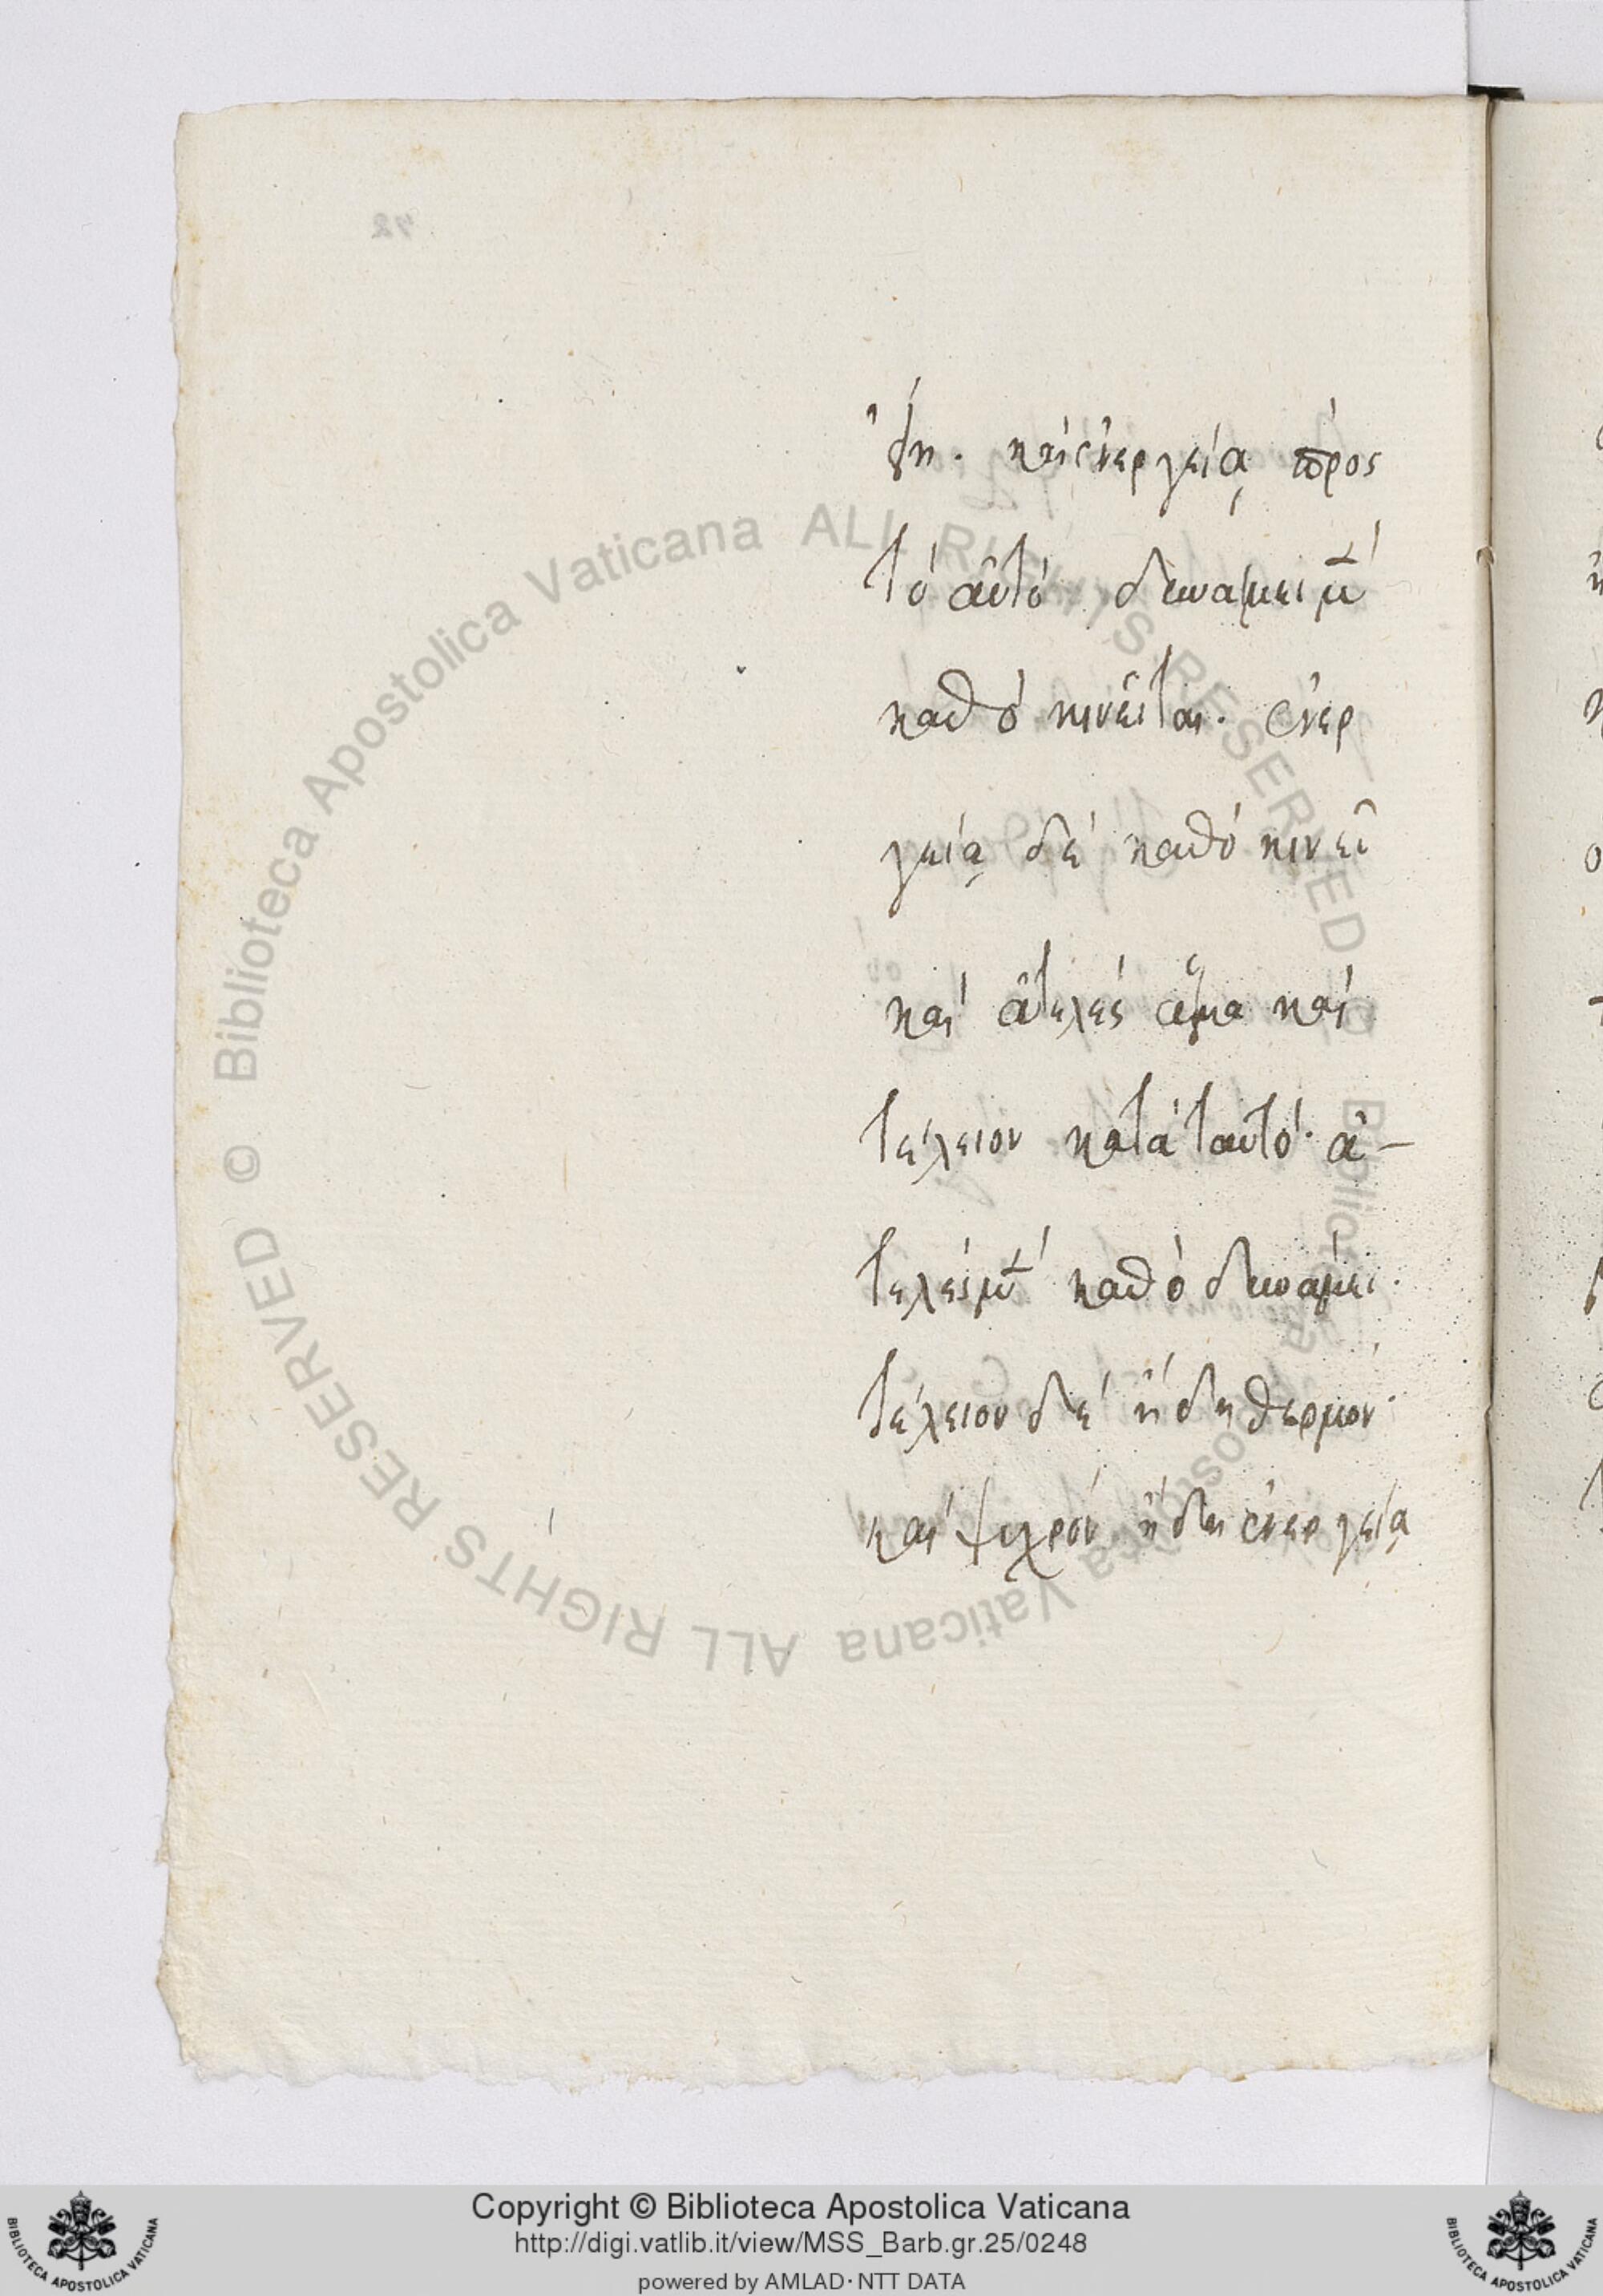 ἔφη. καὶ ἐνεργείᾳ πρὸς
τὸ αὐτὸ δυνάμει μὲν
καθὸ κινεῖται. ἐνερ
γείᾳ δὲ καθὸ κινεῖ
καὶ ἀτελὲς ἅμα καὶ
τέλειον κατὰ ταυτό· ἀ-
τελὲς μὲν καθὸ δυνάμει.
τέλειον δὲ ἤδη θερμὸν
καὶ ψυχρὸν ἤδη ἐνεργείᾳ
© Biblioteca Apostolica Vaticana ALL RIGHTS RESERVED © Biblioteca Apostolica Vaticana ALL RIGHTS RESERVED
Copyright © Biblioteca Apostolica Vaticana
http://digi.vatlib.it/view/MSS_Barb.gr.25/0248
powered by AMLAD·NTT DATA
BIBLIOTECA APOSTOLICA VATICANA
BIBLIOTECA APOSTOLICA VATICANA